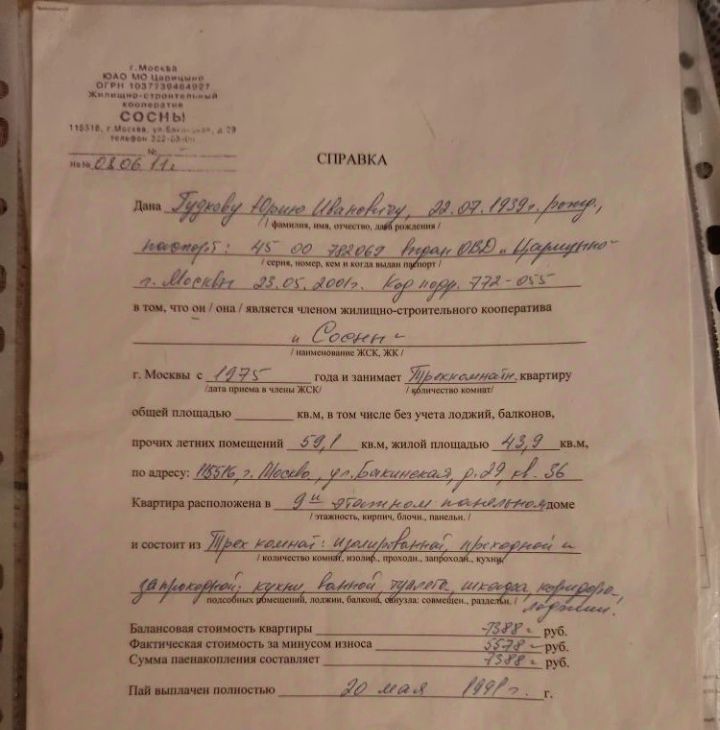 г. Москва
ЮАО МО Царицыно
ОГРН 1037739464927
Жилищно-строительный
кооператив
СОСНЫ
115516, г. Москва, ул. Бакинская, д. 29
телефон 322-03-01
№
На № 03.06.11г.
СПРАВКА
Дана Гудкову Юрию Ивановичу, 22.07.1939г. рожд.,
/ фамилия, имя, отчество, дата рождения /
паспорт: 45 00 782069 выдан ОВД "Царицыно"
/ серия, номер, кем и когда выдан паспорт /
г. Москвы 23.05.2001г. Код подр. 772-055
в том, что он / она / является членом жилищно-строительного кооператива
"Сосны"
/ наименование ЖСК, ЖК /
г. Москвы с 1975 года и занимает Трехкомнатн. квартиру
/дата приема в члены ЖСК/ / количество комнат/
общей площадью кв.м, в том числе без учета лоджий, балконов,
прочих летних помещений 59,1 кв.м, жилой площадью 43,9 кв.м,
по адресу: 115516, г. Москва, ул. Бакинская, д. 29, кв. 36
Квартира расположена в 9и этажном панельном доме
/ этажность, кирпич, блочн., панельн. /
и состоит из Трех комнат: изолированной, проходной и
/ количество комнат, изолир., проходн., запроходн., кухни,
запроходной, кухни, ванной, туалета, шкафа, коридора,
подсобных помещений, лоджии, балкона, санузла: совмещен., раздельн. / лоджии.
Балансовая стоимость квартиры 7388 = руб.
Фактическая стоимость за минусом износа 5578 = руб.
Сумма паенакопления составляет 7388 = руб.
Пай выплачен полностью 20 мая 1991г. г.